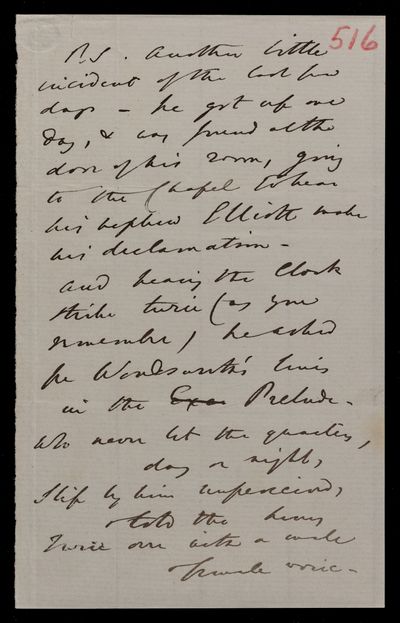 516
P.S. Another little
incident of the last few
days - he got up one
day, & was found at the
door of his room, going
to the Chapel to hear
his nephew Elliott make
his declamation -
and hearing the Clock
strike twice (as you
remember) he asked
for Wordsworth's lines
in the Exc Prelude -
who never let the quarters,
day or night,
Slip by him unperceived,
& told the hours
Twice over with a male
& female voice -